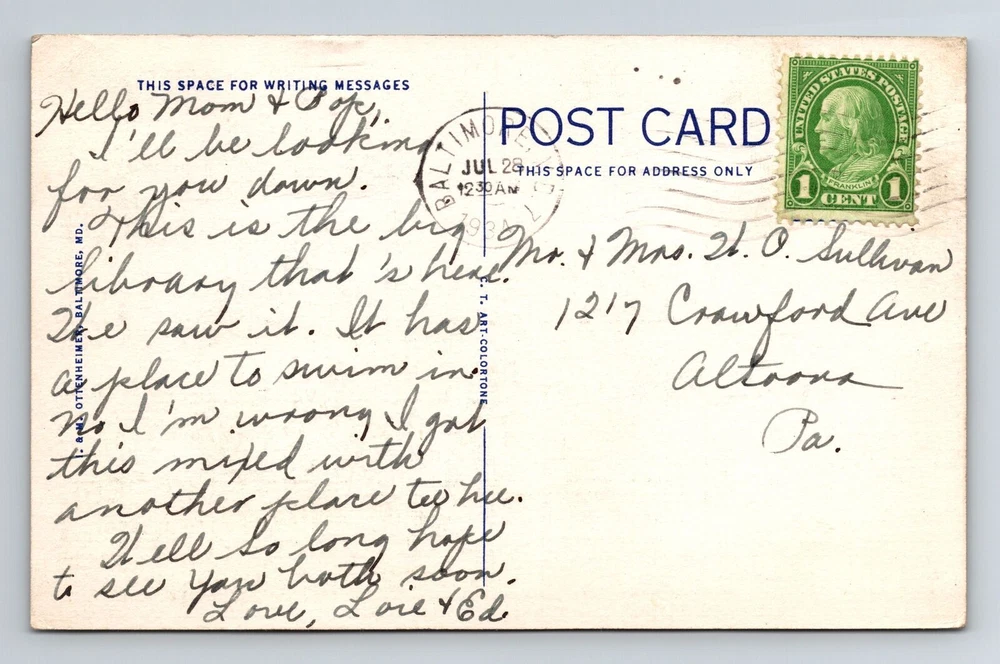 THIS SPACE FOR WRITING MESSAGES
Hello Mom & Pop,
I'll be looking
for you down.
This is the big
library that's here.
We saw it. It has
a place to swim in.
No I'm wrong I got
this mixed with
another place tee hee.
Well so long hope
to see you both soon.
Love, Lois & Ed.
& M. OTTENHEIMER, BALTIMORE, MD.
C. T. ART-COLORTONE
POST CARD
THIS SPACE FOR ADDRESS ONLY
BALTIMORE
JUL 28
12 30 AM
UNITED STATES POSTAGE
FRANKLIN
1 CENT 1
Mr. & Mrs. W. O. Sullivan
1217 Crawford Ave
Altoona
Pa.